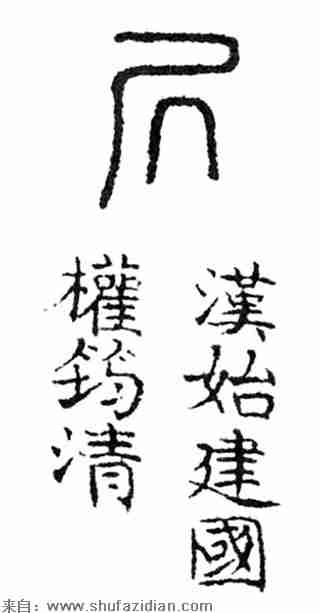 漢始建國
權筠清
来自：www.shufazidian.com